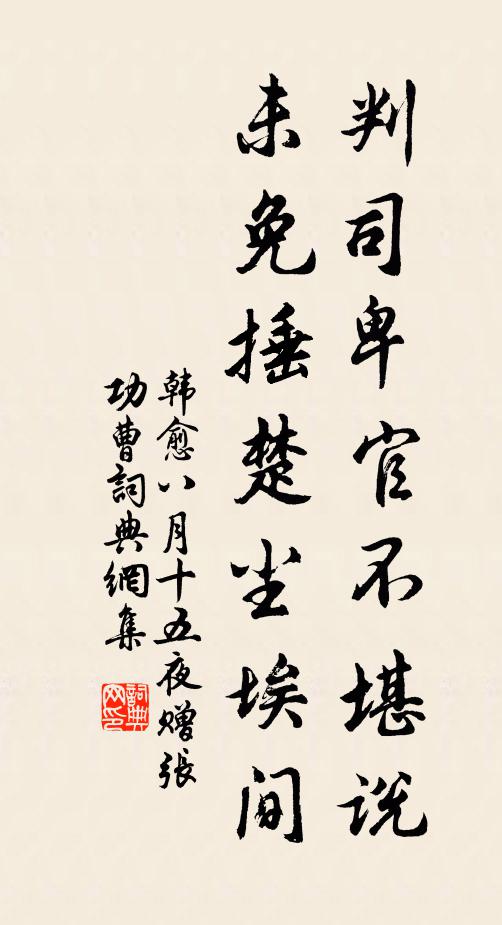 判司卑官不堪说
未免捶楚尘埃间
韩愈八月十五夜赠張
功曹詞典網集
詞典网印